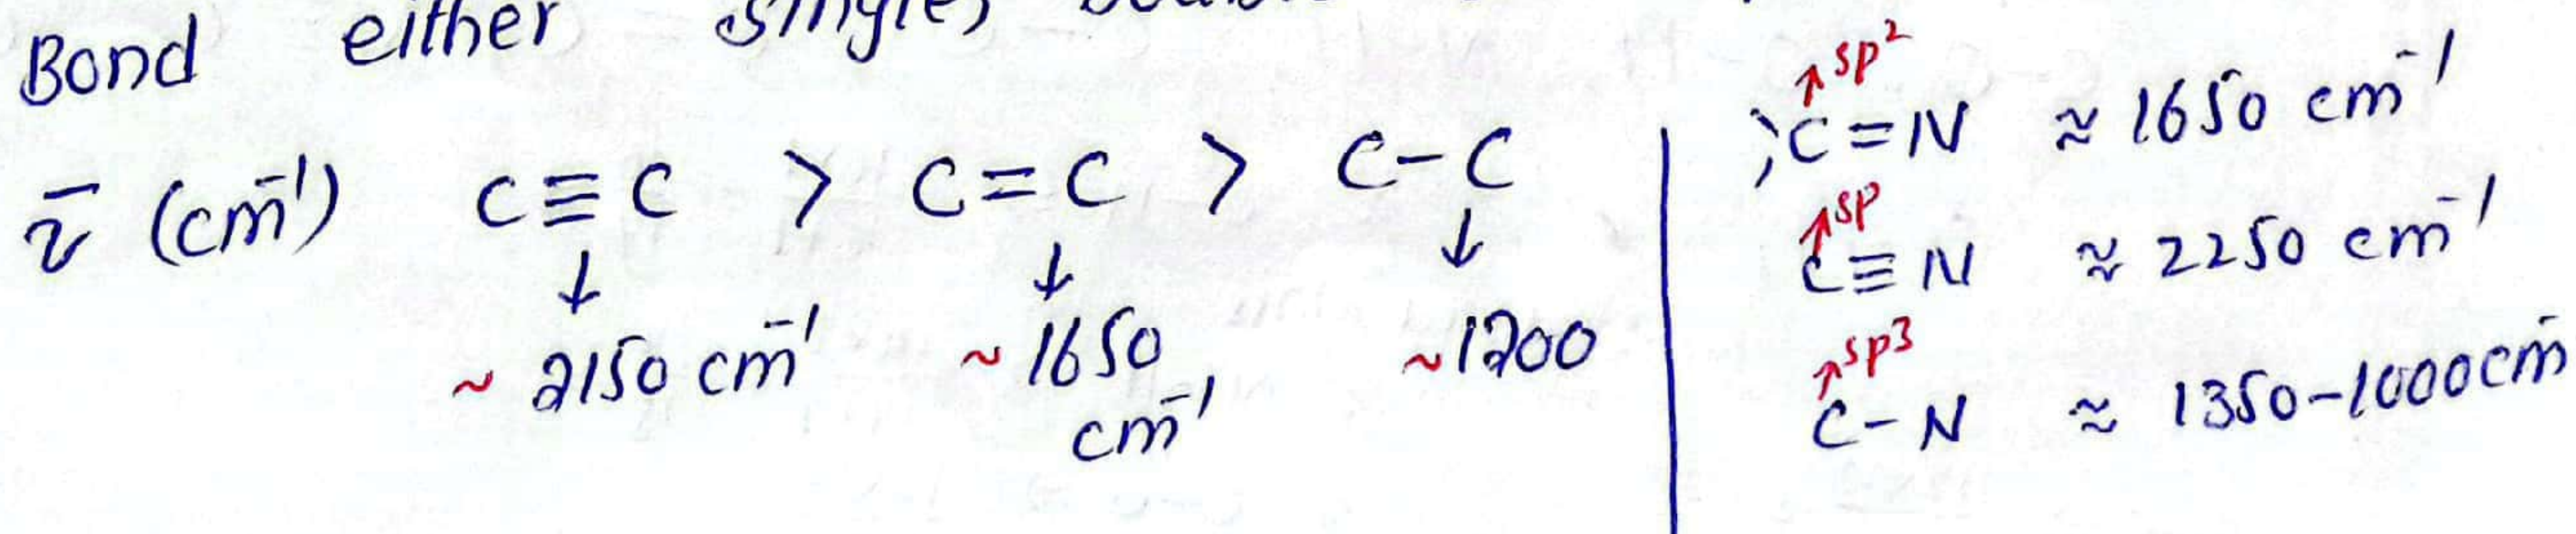 Bond either single,
ν̄ (cm⁻¹) C≡C > C=C > C-C
↓ ↓ ↓
~ 2150 cm⁻¹ ~ 1650 cm⁻¹ ~1200
↑sp²
C=N ≈ 1650 cm⁻¹
↑sp
C≡N ≈ 2250 cm⁻¹
↑sp3
C-N ≈ 1350-1000cm⁻